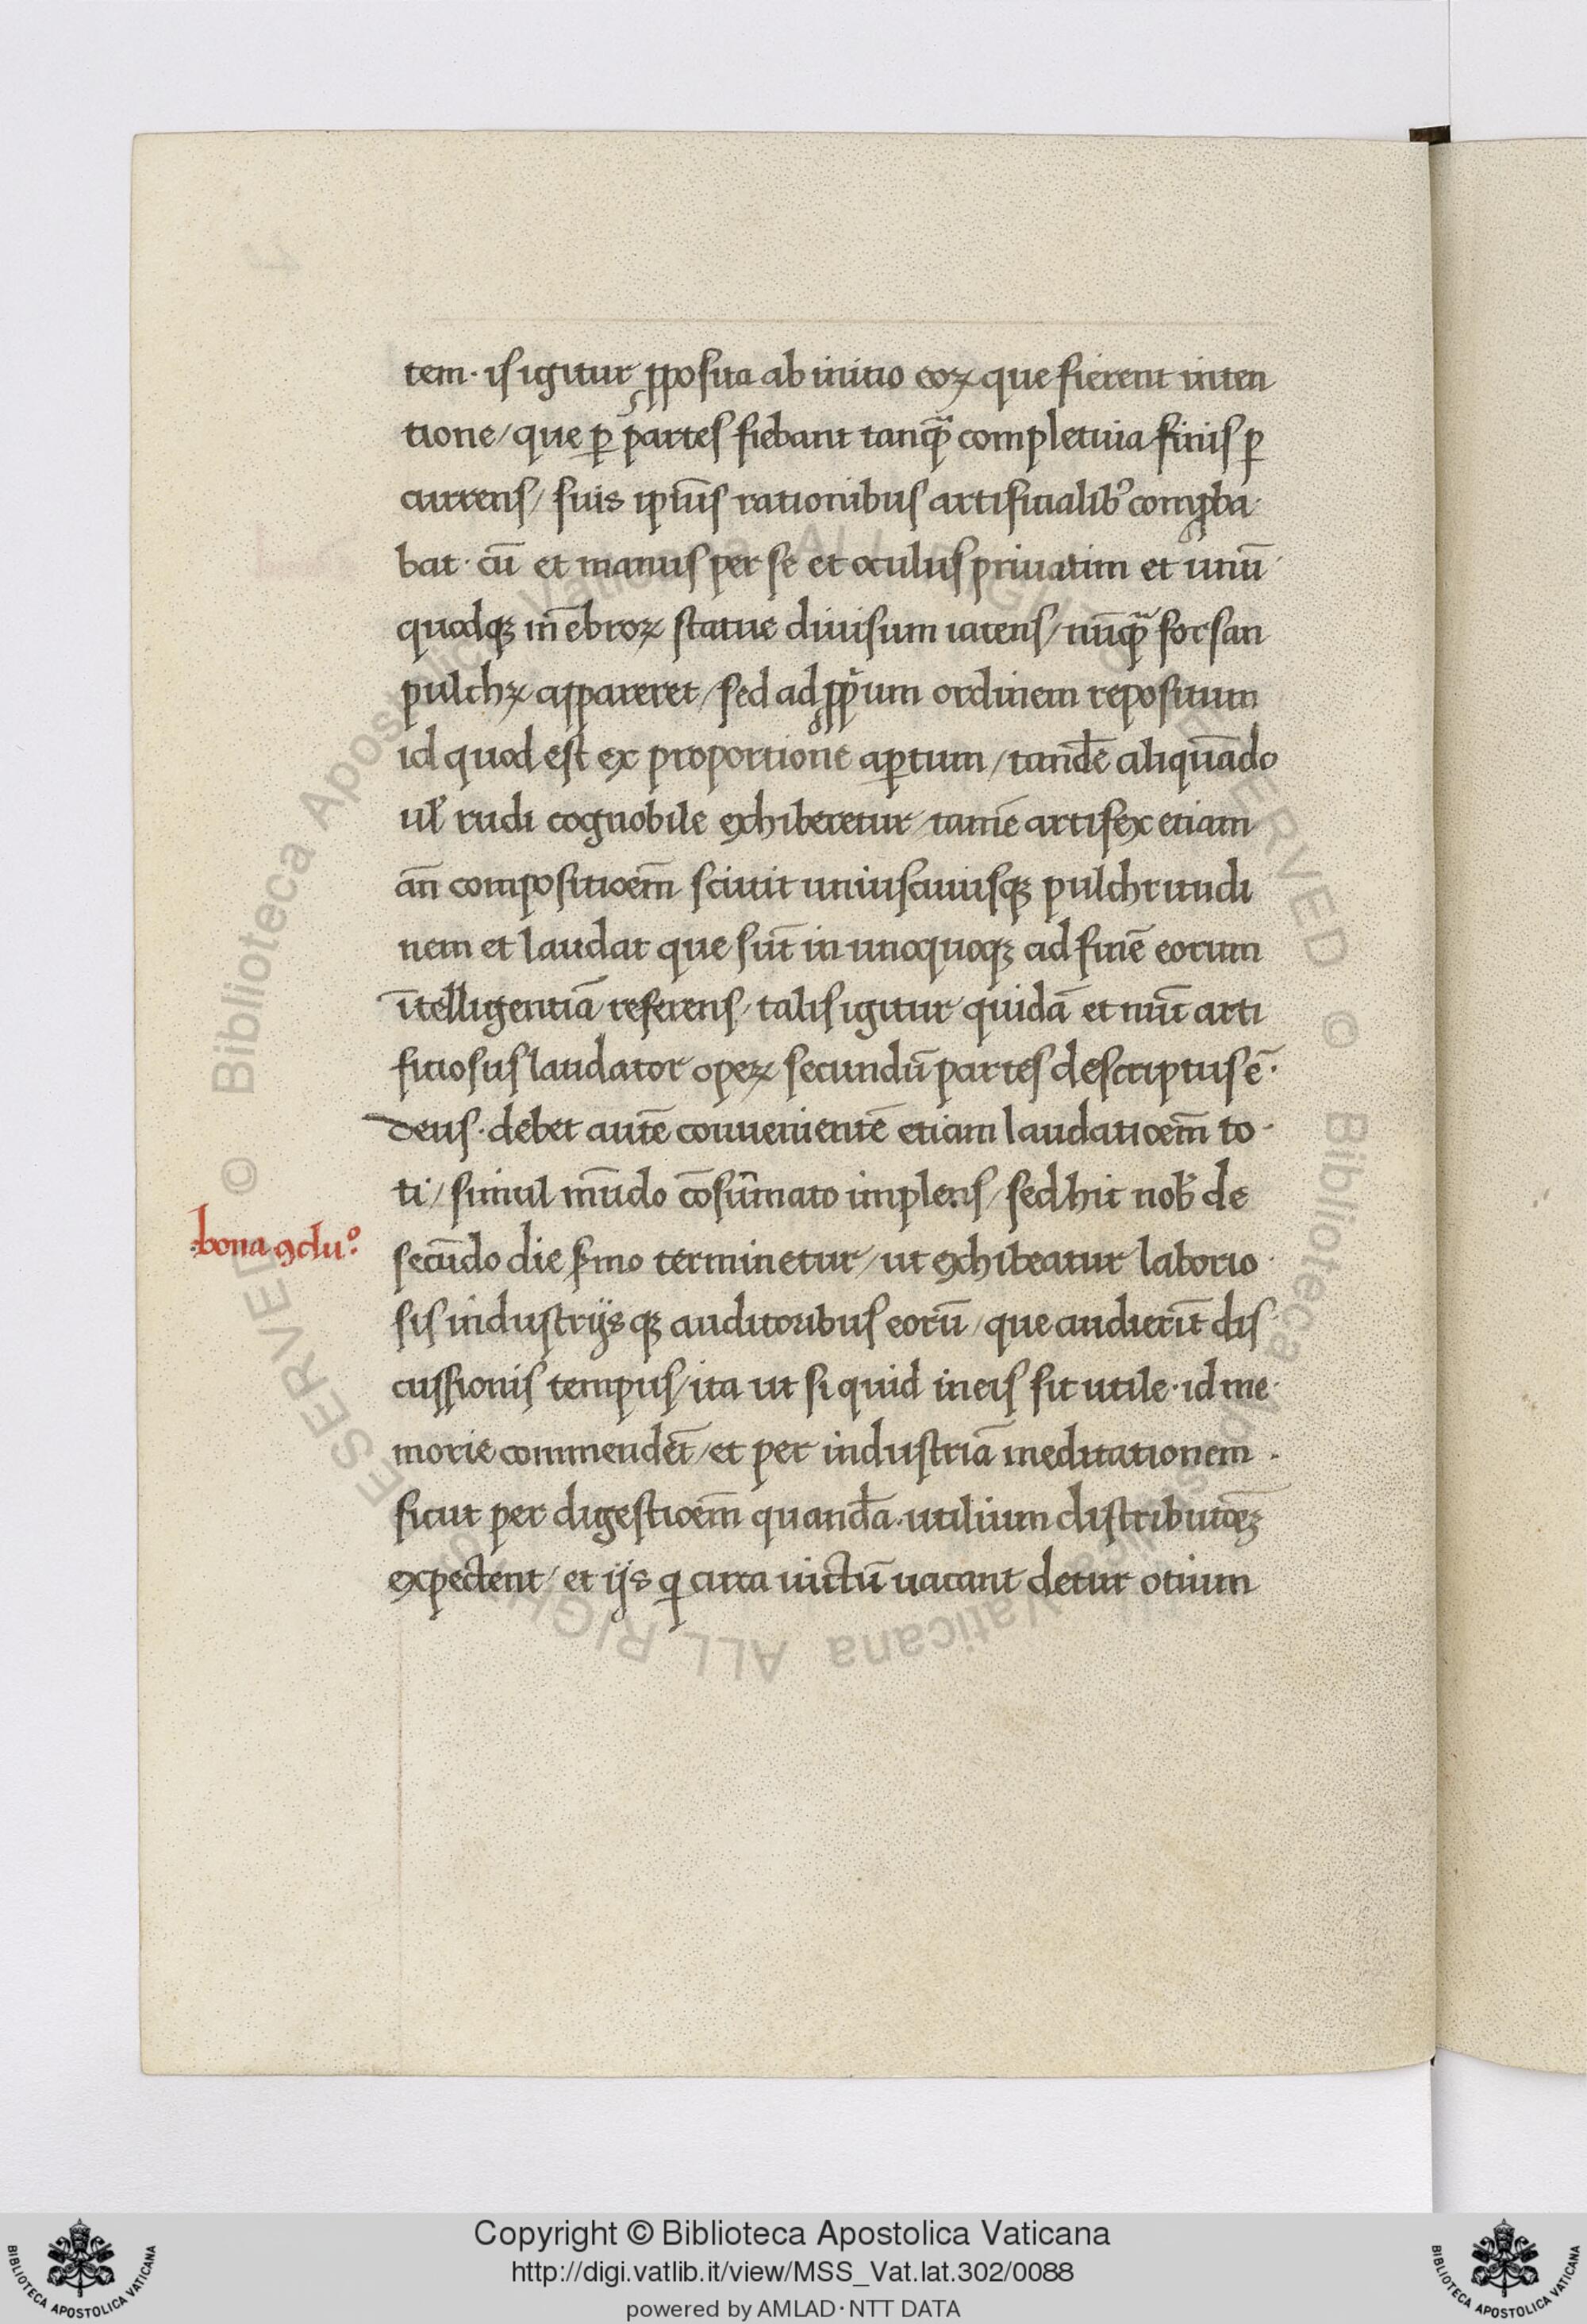 tem· is igitur ꝓposita ab initio eoꝝ que fierent inten
tione/ que ꝑ partes fiebant tanꝙ̃ completiuia finis ꝑ
currens/ suis ipiꝰs rationibus artificialibꝰ comꝓba·
bat· cū et manus per se et oculus priuatim et unū
quodqꝫ mēbroꝝ statue diuisum iacens/ nūꝙ̃ forsan
pulchꝝ appareret/ sed ad ꝓpͥum ordinem repositum
id quod est ex proportione aꝑtum/ tandē aliquādo
ul̓ rudi cognobile exhiberetur/ tamē artifex etiam
an̄ compositioem̄ sciuit uniuscuiusqꝫ pulchritudi
nem et laudat que sūt in unoquoqꝫ ad finē eorum
ītelligentiā referens/ talis igitur quidā et nūc arti
ficiosus laudator opeꝝ secundū partes descriptus ē·
deus· debet autē conuenientē etiam laudatioem̄ to·
ti/ simul mūdo cōsūmato implens/ sed hic nob̓ de
bona ꝯclu.º
secūdo die s̓mo terminetur/ ut exhibeatur laborio·
sis industrijs qꝫ auditoribus eorū/ que audierūt dis
cussionis tempus/ ita ut si quid in eis sit utile· id me·
morie commendēt/ et per industriā meditationem·
sicut per digestioem̄ quandā· utilium distributōeꝫ
expectent/ et ijs q̇ circa uictū uacant detur otium
Copyright © Biblioteca Apostolica Vaticana
http://digi.vatlib.it/view/MSS_Vat.lat.302/0088
powered by AMLAD·NTT DATA
BIBLIOTECA APOSTOLICA VATICANA
BIBLIOTECA APOSTOLICA VATICANA